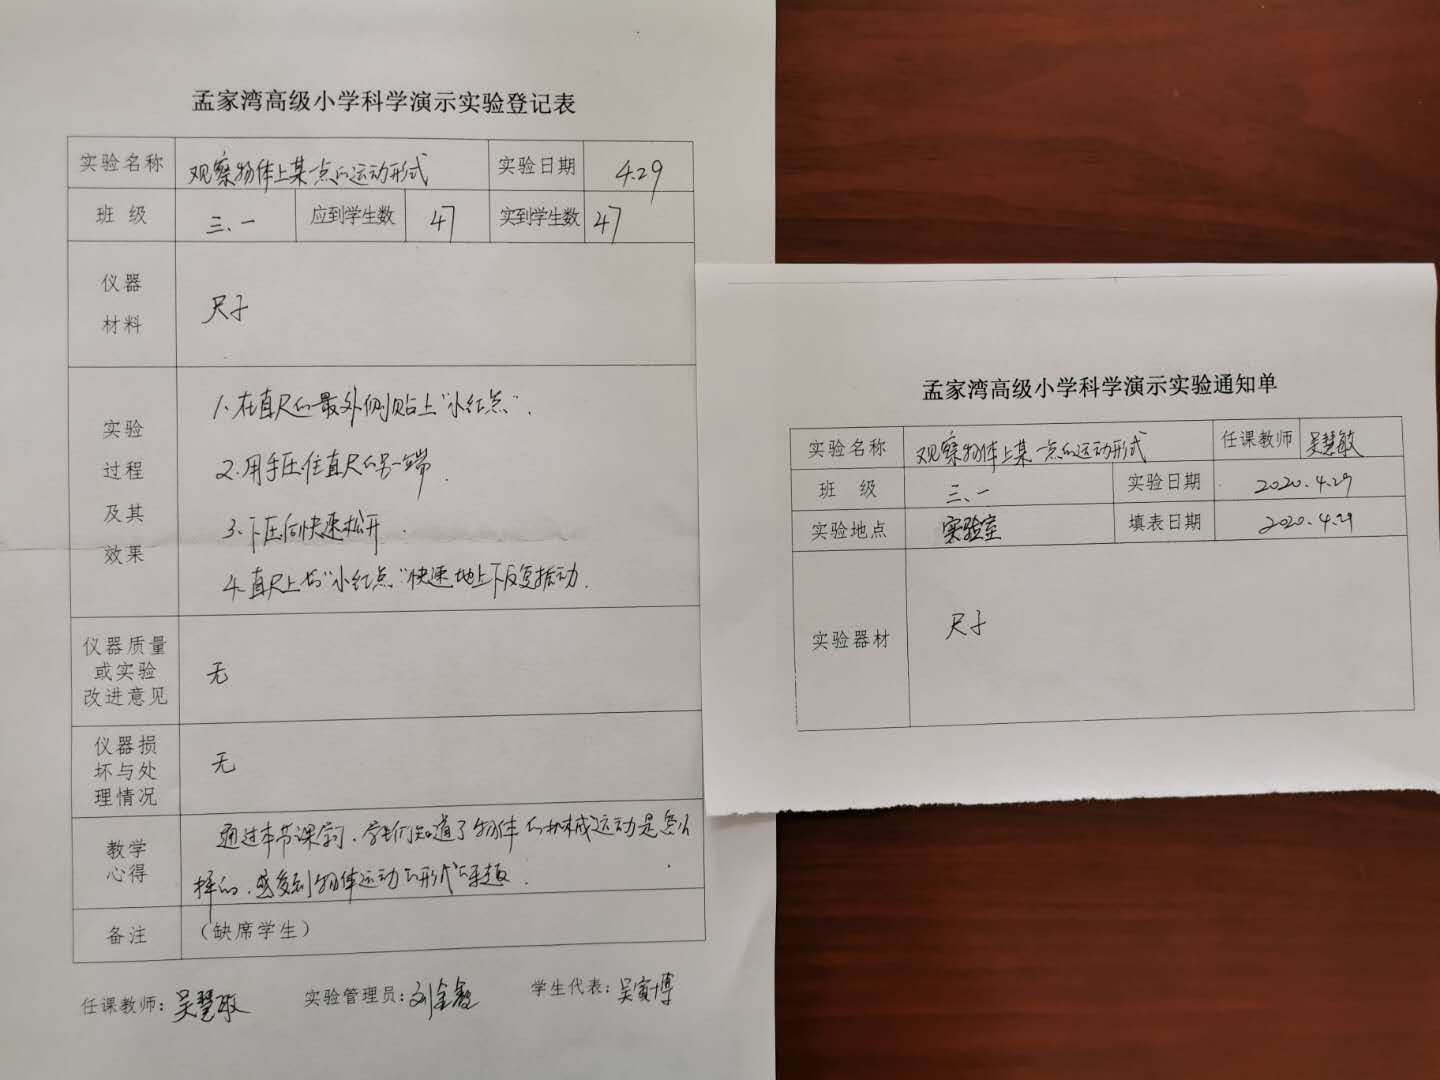 孟家湾高级小学科学演示实验登记表
实验名称 观察物体上某一点的运动形式 实验日期 4.29
班 级 三、一 应到学生数 47 实到学生数 47
仪器
材料
尺子
实验
过程
及其
效果
1、在直尺的最外侧贴上"小红点".
2、用手压住直尺的另一端.
3、下压后快速松开.
4、直尺上的"小红点"快速地上下反复振动.
仪器质量
或实验
改进意见
无
仪器损
坏与处
理情况
无
教学
心得
通过本节课学习,学生们知道了物体的机械运动是怎么
样的,感受到物体运动的形式
备注 (缺席学生)
任课教师:吴慧敏 实验管理员:刘金 学生代表:吴 博
孟家湾高级小学科学演示实验通知单
实验名称 观察物体上某一点的运动形式 任课教师 吴慧敏
班 级 三、一 实验日期 2020.4.29
实验地点 实验室 填表日期 2020.4.29
实验器材 尺子